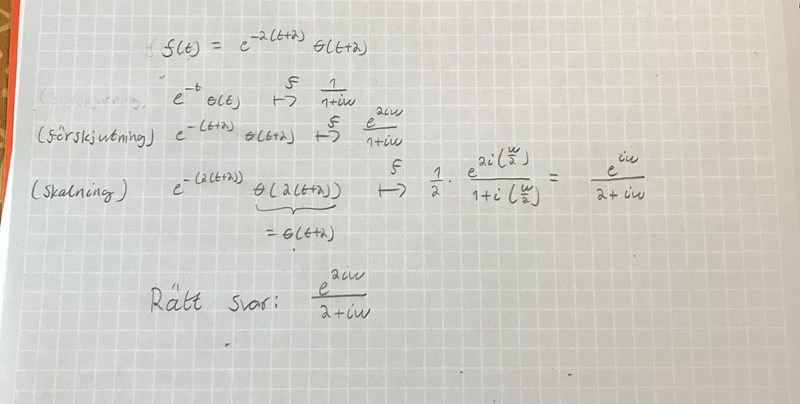 f(t) = e^{-2(t+2)} θ(t+2)
e^{-t} θ(t) ↦^{F} 1/(1+iω)
(förskjutning) e^{-(t+2)} θ(t+2) ↦^{F} e^{2iω}/(1+iω)
(skalning) e^{-(2(t+2))} θ(2(t+2)) ↦^{F} 1/2 · e^{2i(ω/2)}/(1+i(ω/2)) = e^{iω}/(2+iω)
= θ(t+2)
Rätt svar: e^{2iω}/(2+iω)